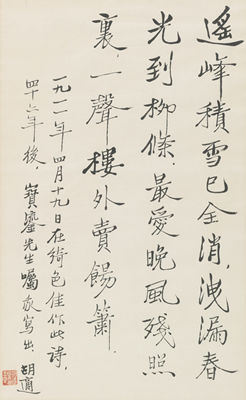 遙峰積雪已全消，洩漏春
光到柳條．最愛晚風殘照
裏，一聲樓外賣餳簫．
一九一一年四月十九日在綺色佳作此詩．
四十六年後，寶鎏先生囑我寫出．胡適